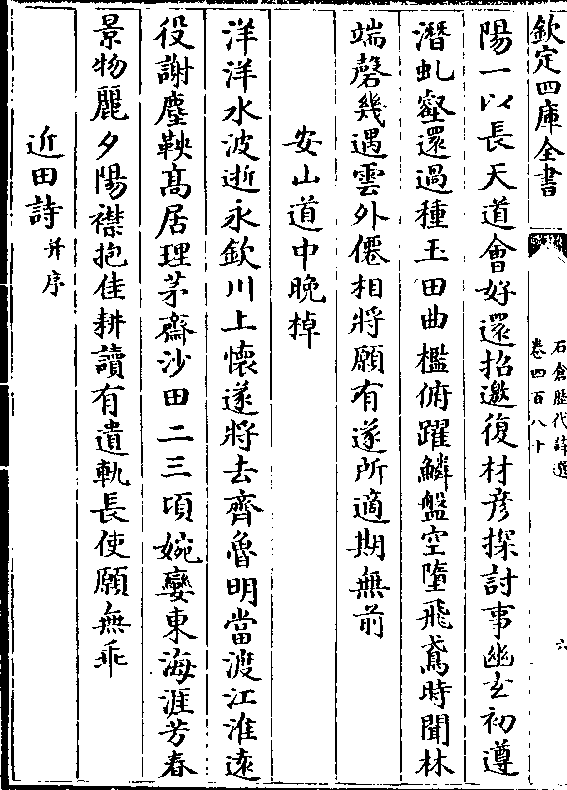 欽定四庫全書
石倉歴代詩選
卷四百八十
六
陽一以長天道會好還招邀復材彦探討事幽玄初遵
潛虬壑還過種玉田曲檻俯躍鱗盤空墮飛鳶時聞林
端磬幾遇雲外僊相將願有遂所適期無前
安山道中晚棹
洋洋水波逝永欽川上懷遂將去齊魯明當渡江淮逺
役謝塵鞅髙居理茅齋沙田二三頃婉孌東海涯芳春
景物麗夕陽襟抱佳耕讀有遺軌長使願無乖
近田詩并序